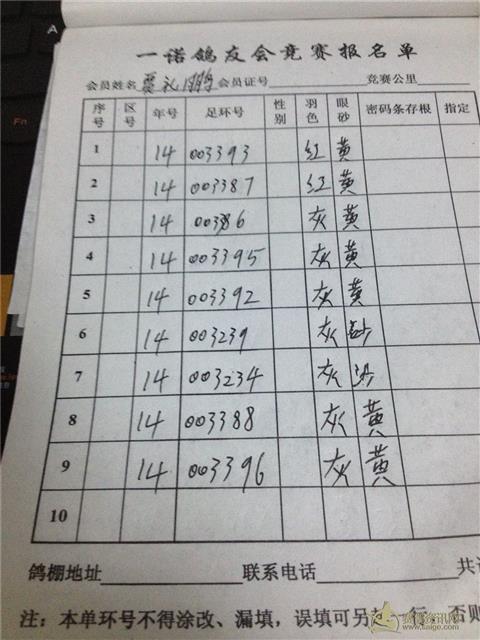 A
Fn
一诺鸽友会竞赛报名单
会员姓名 会员证号 竞赛公里
序号 区号 年号 足环号 性别 羽色 眼砂 密码条存根 指定
1 14 003393 红 黄
2 14 003387 红 黄
3 14 003386 灰 黄
4 14 003395 灰 黄
5 14 003392 灰 黄
6 14 003239 灰 砂
7 14 003234 灰 沙
8 14 003388 灰 黄
9 14 003396 灰 黄
10
鸽棚地址 联系电话 共
注：本单环号不得涂改、漏填，误填可另 一行，否则
www.saige.com